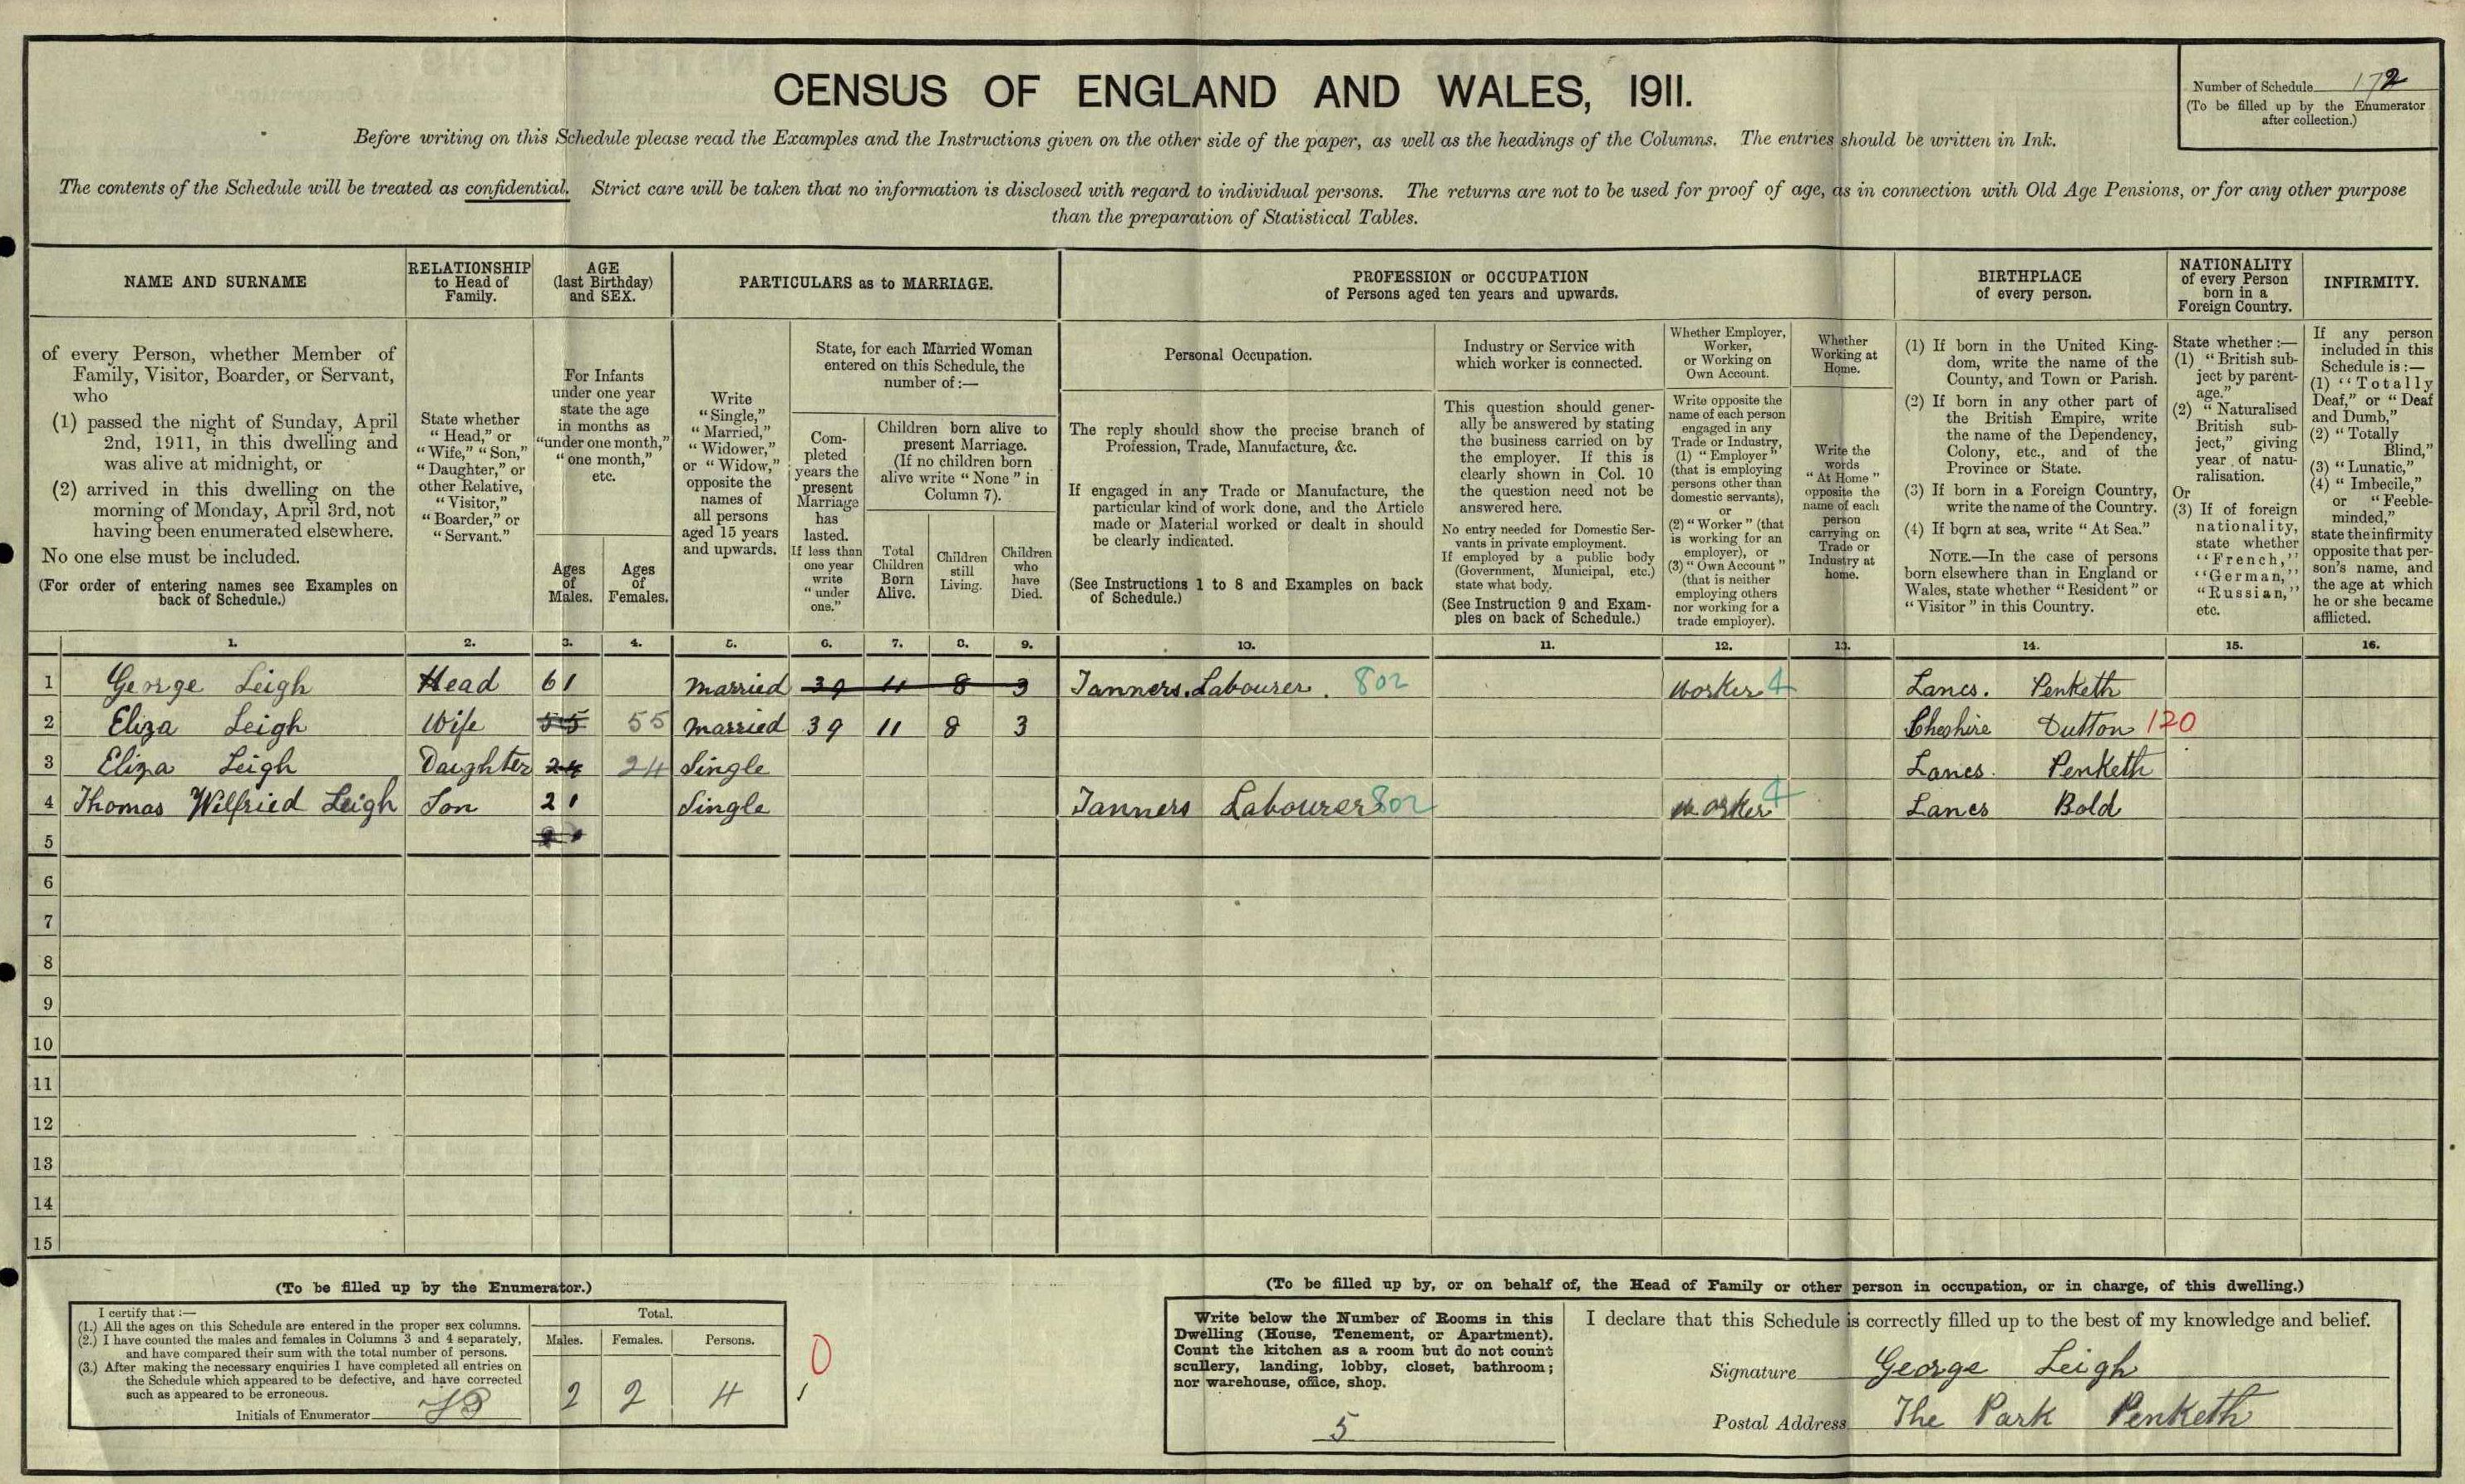 CENSUS OF ENGLAND AND WALES, 1911.
Number of Schedule 172
(To be filled up by the Enumerator
after collection.)
Before writing on this Schedule please read the Examples and the Instructions given on the other side of the paper, as well as the headings of the Columns. The entries should be written in Ink.
The contents of the Schedule will be treated as confidential. Strict care will be taken that no information is disclosed with regard to individual persons. The returns are not to be used for proof of age, as in connection with Old Age Pensions, or for any other purpose
than the preparation of Statistical Tables.
NAME AND SURNAME
of every Person, whether Member of
Family, Visitor, Boarder, or Servant,
who
(1) passed the night of Sunday, April
2nd, 1911, in this dwelling and
was alive at midnight, or
(2) arrived in this dwelling on the
morning of Monday, April 3rd, not
having been enumerated elsewhere.
No one else must be included.
(For order of entering names see Examples on
back of Schedule.)
RELATIONSHIP
to Head of
Family.
State whether
"Head," or
"Wife," "Son,"
"Daughter," or
other Relative,
"Visitor,"
"Boarder," or
"Servant."
AGE
(last Birthday)
and SEX.
For Infants
under one year
state the age
in months as
"under one month,"
"one month,"
etc.
Ages
of
Males.
Ages
of
Females.
PARTICULARS as to MARRIAGE.
Write
"Single,"
"Married,"
"Widower,"
or "Widow,"
opposite the
names of
all persons
aged 15 years
and upwards.
State, for each Married Woman
entered on this Schedule, the
number of :—
Com-
pleted
years the
present
Marriage
has
lasted.
If less than
one year
write
"under
one."
Children born alive to
present Marriage.
(If no children born
alive write "None" in
Column 7).
Total
Children
Born
Alive.
Children
still
Living.
Children
who
have
Died.
PROFESSION or OCCUPATION
of Persons aged ten years and upwards.
Personal Occupation.
The reply should show the precise branch of
Profession, Trade, Manufacture, &c.
If engaged in any Trade or Manufacture, the
particular kind of work done, and the Article
made or Material worked or dealt in should
be clearly indicated.
(See Instructions 1 to 8 and Examples on back
of Schedule.)
Industry or Service with
which worker is connected.
This question should gener-
ally be answered by stating
the business carried on by
the employer. If this is
clearly shown in Col. 10
the question need not be
answered here.
No entry needed for Domestic Ser-
vants in private employment.
If employed by a public body
(Government, Municipal, etc.)
state what body.
(See Instruction 9 and Exam-
ples on back of Schedule.)
Whether Employer,
Worker,
or Working on
Own Account.
Write opposite the
name of each person
engaged in any
Trade or Industry,
(1) "Employer"
(that is employing
persons other than
domestic servants),
or
(2) "Worker" (that
is working for an
employer), or
(3) "Own Account"
(that is neither
employing others
nor working for a
trade employer).
Whether
Working at
Home.
Write the
words
"At Home"
opposite the
name of each
person
carrying on
Trade or
Industry at
home.
BIRTHPLACE
of every person.
(1) If born in the United King-
dom, write the name of the
County, and Town or Parish.
(2) If born in any other part of
the British Empire, write
the name of the Dependency,
Colony, etc., and of the
Province or State.
(3) If born in a Foreign Country,
write the name of the Country.
(4) If born at sea, write "At Sea."
NOTE.—In the case of persons
born elsewhere than in England or
Wales, state whether "Resident" or
"Visitor" in this Country.
NATIONALITY
of every Person
born in a
Foreign Country.
State whether :—
(1) "British sub-
ject by parent-
age."
(2) "Naturalised
British sub-
ject," giving
year of natu-
ralisation.
Or
(3) If of foreign
nationality,
state whether
"French,"
"German,"
"Russian,"
etc.
INFIRMITY.
If any person
included in this
Schedule is :—
(1) "Totally
Deaf," or "Deaf
and Dumb,"
(2) "Totally
Blind,"
(3) "Lunatic,"
(4) "Imbecile,"
or "Feeble-
minded,"
state the infirmity
opposite that per-
son's name, and
the age at which
he or she became
afflicted.
1. 2. 3. 4. 5. 6. 7. 8. 9. 10. 11. 12. 13. 14. 15. 16.
1 George Leigh Head 61 Married 39 11 8 3 Tanners Labourer. 802 Worker 4 Lancs. Penketh
2 Eliza Leigh Wife 55 55 Married 39 11 8 3 Cheshire Dutton 120
3 Eliza Leigh Daughter 24 24 Single Lancs. Penketh
4 Thomas Wilfried Leigh Son 21 Single Tanners Labourer 802 Worker 4 Lancs Bold
5
6
7
8
9
10
11
12
13
14
15
(To be filled up by the Enumerator.)
I certify that :—
(1.) All the ages on this Schedule are entered in the proper sex columns.
(2.) I have counted the males and females in Columns 3 and 4 separately,
and have compared their sum with the total number of persons.
(3.) After making the necessary enquiries I have completed all entries on
the Schedule which appeared to be defective, and have corrected
such as appeared to be erroneous.
Initials of Enumerator
Total.
Males. Females. Persons.
2 2 4
0
(To be filled up by, or on behalf of, the Head of Family or other person in occupation, or in charge, of this dwelling.)
Write below the Number of Rooms in this
Dwelling (House, Tenement, or Apartment).
Count the kitchen as a room but do not count
scullery, landing, lobby, closet, bathroom;
nor warehouse, office, shop.
5
I declare that this Schedule is correctly filled up to the best of my knowledge and belief.
Signature George Leigh
Postal Address The Park Penketh